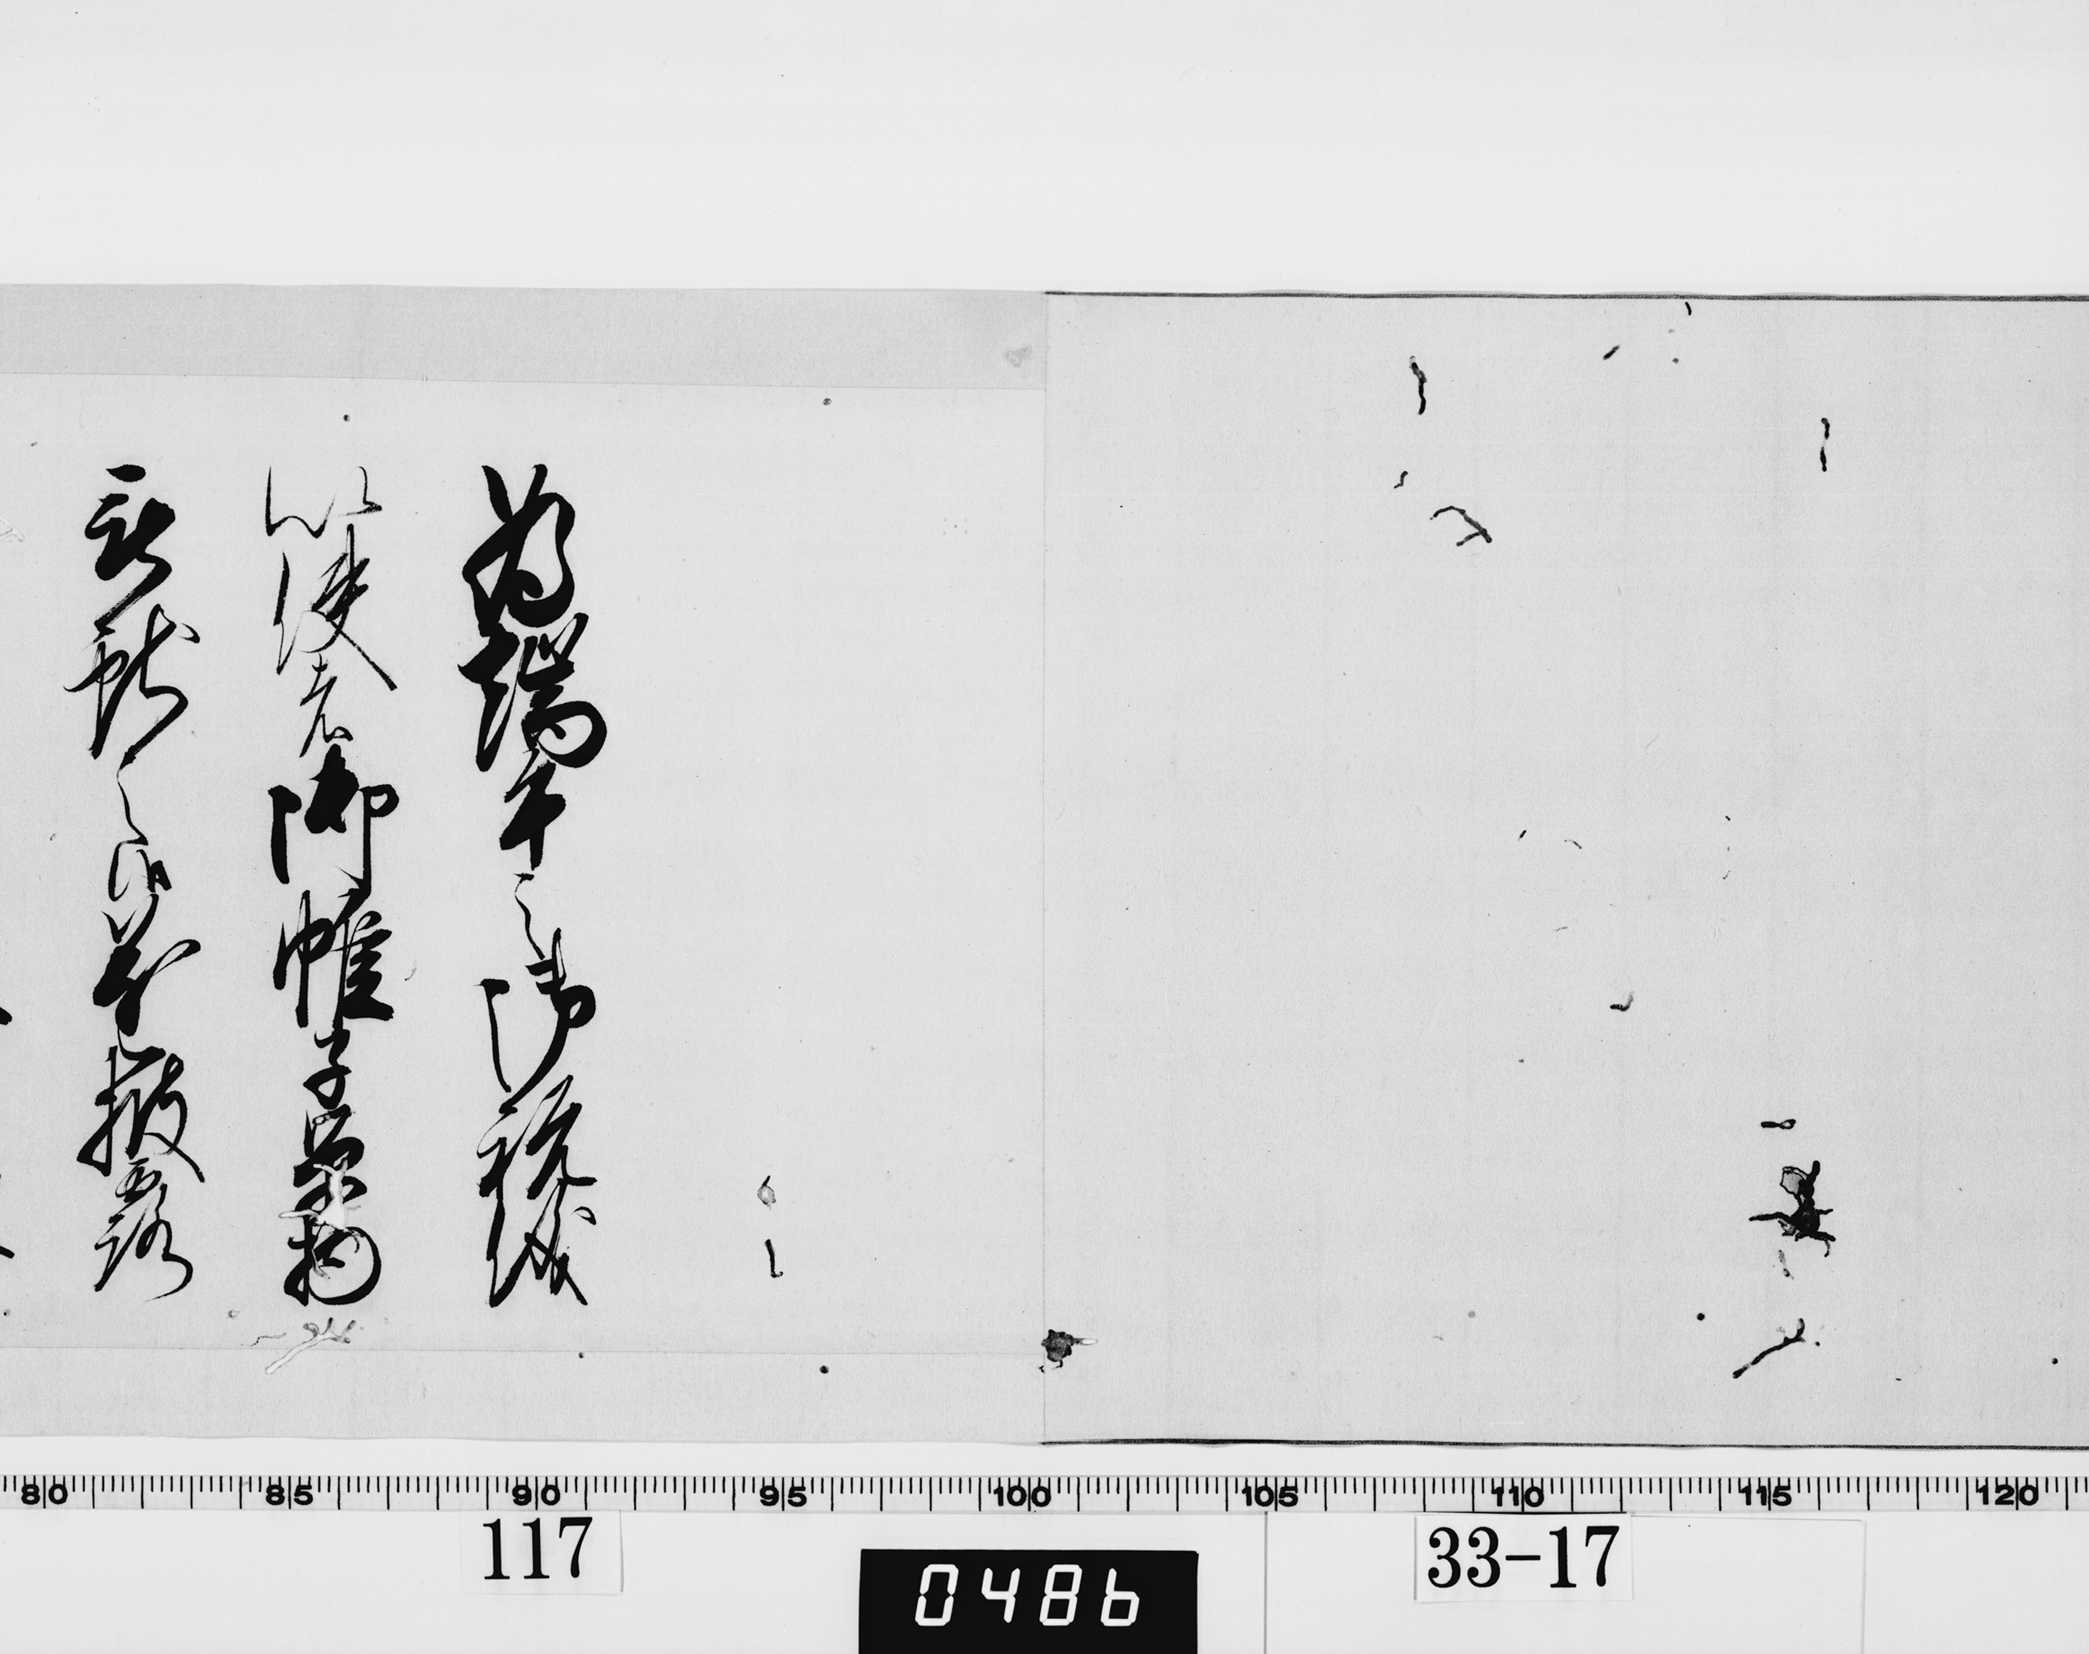 為端午之御祝儀
以使者御帷子単物
被献之候遂披露
80 85 90 95 100 105 110 115 120
117
0486
33-17